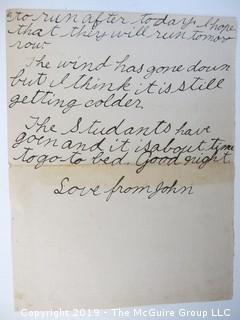 to run after today. I hope
that they will run tomor
row
The wind has gone down
but I think it is still
getting colder.
The Studants have
goin and it is about time
to go to bed. Good night
Love from John
Copyright 2019 - The McGuire Group LLC